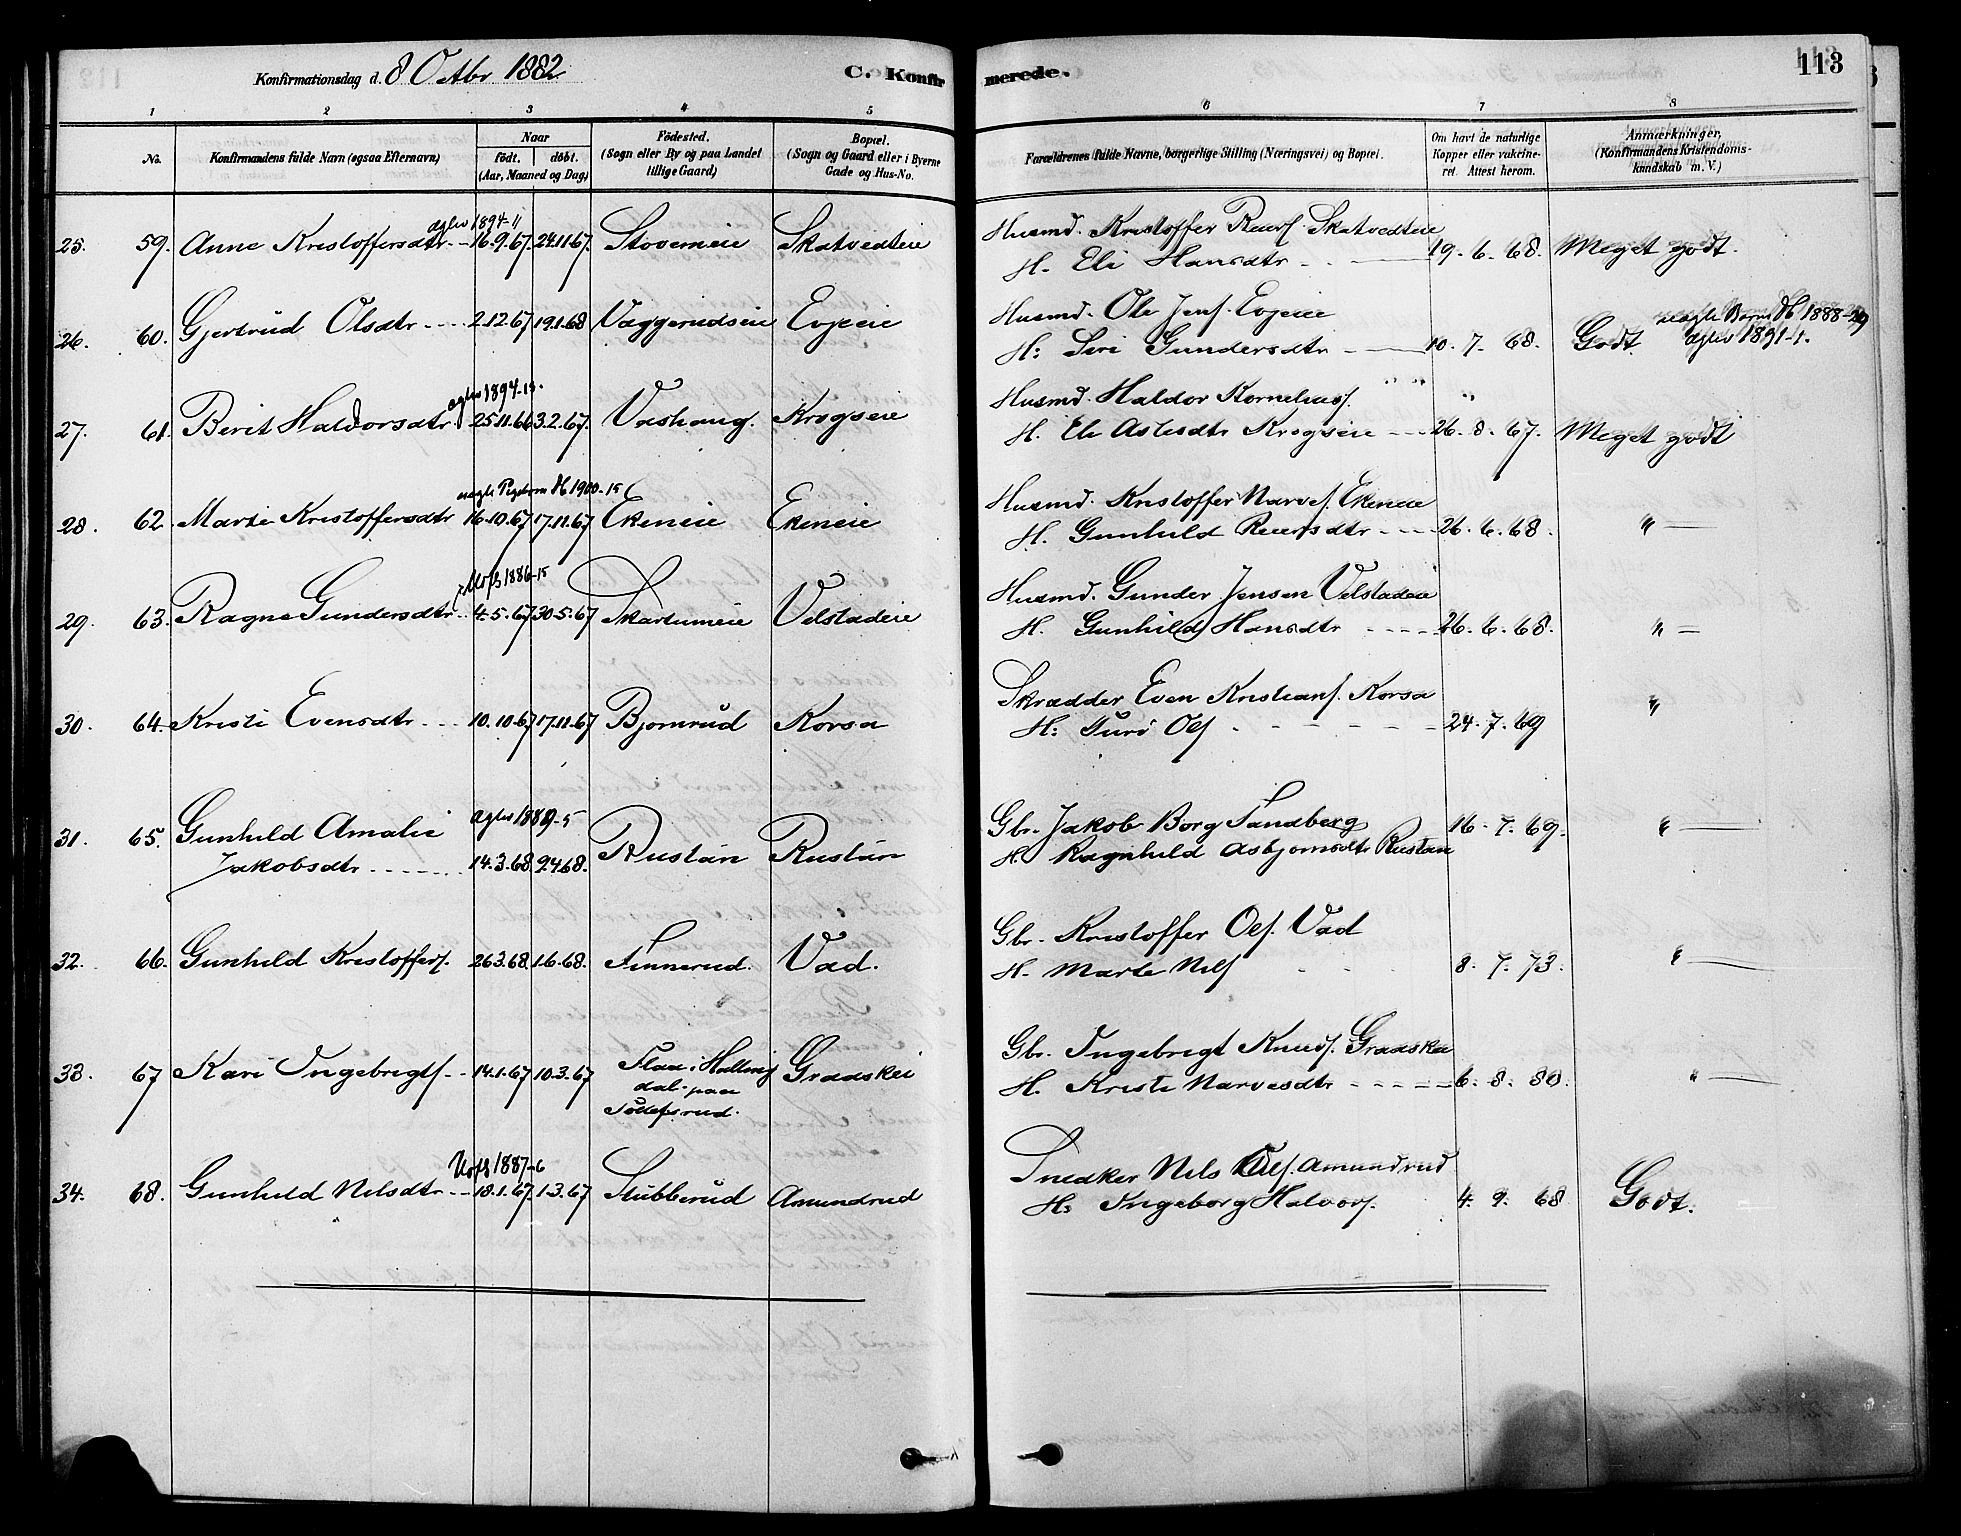 Konfirmationsdag d. 8 Octbr 1882
C. Konfirmerede.
113
1 2 3 4 5 6 7 8
No. Konfirmandens fulde Navn (ogsaa Efternavn) Naar født. døbt. (Aar, Maaned og Dag) Fødested. (Sogn eller By og paa Landet tillige Gaard) Bopæl. (Sogn og Gaard eller i Byerne Gade og Hus-No. Forældrenes fulde Navne, borgerlige Stilling (Næringsvei) og Bopæl. Om havt de naturlige Kopper eller vakcineret. Attest herom. Anmærkninger, (Konfirmandens Kristendomskundskab m. V.)
aglev 1894-11
25. 59. Anne Kristoffersdtr. 16.9.67. 24.11.67. Stoverneie Skatvedteie Husmd. Kristoffer Reiers. Skatvedteie
H. Eli Hansdtr 19.6.68. Meget godt.
26. 60. Gjertrud Olsdtr 2.12.67 19.1.68 Væggerudseie Evjeeie Husmd. Ole Jens. Evjeeie
H: Siri Gundersdtr 10.7.68. Godt. 1888-29
aglev 1891-1.
aglev 1894-18.
27. 61. Berit Haldorsdtr 25.11.66 3.2.67. Vashaug. Krogseie Husmd. Haldor Kornelius.
H. Eli Aslesdtr Krogseie 26.8.67. Meget godt
1900-15
28. 62. Marte Kristoffersdtr 16.10.67 17.11.67 Ekerneie Ekerneie Husmd. Kristoffer Narves. Ekerneie
H. Gunhild Reiersdtr 26.6.68. "—
1886-15
29. 63. Ragne Gundersdtr 4.5.67 30.5.67 Skartumeie Velstadeie Husmd. Gunder Jensen Velstadeie
H. Gunhild Hansdtr 26.6.68. "—
30. 64. Kristi Evensdtr 10.10.67 17.11.67 Bjørnrud Korsa Skrædder Even Kristians. Korsa
H: Turi Ols 24.7.69 "
aglev 1889-5
31. 65. Gunhild Amalie
Jakobsdtr 14.3.68 9.4.68. Rustan Rustan Gbr. Jakob Borg Sandberg
H. Ragnhild Asbjørnsdtr Rustan 16.7.69. "—
32. 66. Gunhild Kristoffers. 26.3.68. 1.6.68. Finnerud. Vad. Gbr. Kristoffer Ols. Vad
H. Marte Nils 8.7.73. "—
33. 67 Kari Ingebrigts. 14.1.67 10.3.67 Flaa i Halling
dal. paa
Gbr. Ingebrigt Knuds. Graaskei Graaskei
H. Kristi Narvesdtr 6.8.80. "—
1887-6
34. 68. Gunhild Nilsdtr 18.1.67. 1.3.67 Stubberud Amundrud Snedker Nils Ols. Amundrud
H: Ingeborg Halvors. 4.9.68 Godt.